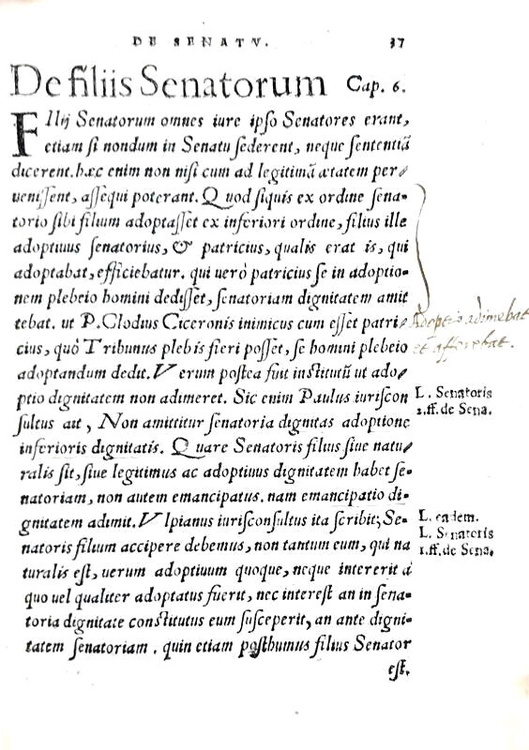 DE SENATV. 37
De filiis Senatorum Cap. 6.
FIlij Senatorum omnes iure ipso Senatores erant,
etiam si nondum in Senatu sederent, neque sententiā
dicerent. hæc enim non nisi cum ad legitimā ætatem per-
uenissent, assequi poterant. Quod siquis ex ordine sena-
torio sibi filium adoptasset ex inferiori ordine, filius ille
adoptiuus senatorius, & patricius, qualis erat is, qui
adoptabat, efficiebatur. qui uerò patricius se in adoptio-
nem plebeio homini dedisset, senatoriam dignitatem amit
tebat. ut P. Clodius Ciceronis inimicus cum esset patri-
Adoptio adimebat
cius, quò Tribunus plebis fieri posset, se homini plebeio
et afferebat.
adoptandum dedit. Verum postea fuit institutū ut ado-
ptio dignitatem non adimeret. Sic enim Paulus iuriscon
L. Senatoris
sultus ait, Non amittitur senatoria dignitas adoptione
1. ff. de Sena.
inferioris dignitatis. Quare Senatoris filius siue natu-
ralis sit, siue legitimus ac adoptiuus dignitatem habet se-
natoriam, non autem emancipatus. nam emancipatio di-
gnitatem adimit. Vlpianus iurisconsultus ita scribit; Se-
L. eadem.
natoris filium accipere debemus, non tantum eum, qui na
L. Senatoris
turalis est, uerum adoptiuum quoque, neque intererit à
1. ff. de Sena.
quo uel qualiter adoptatus fuerit, nec interest an in sena-
toria dignitate constitutus eum susceperit, an ante digni-
tatem senatoriam. quin etiam posthumus filius Senator
est.